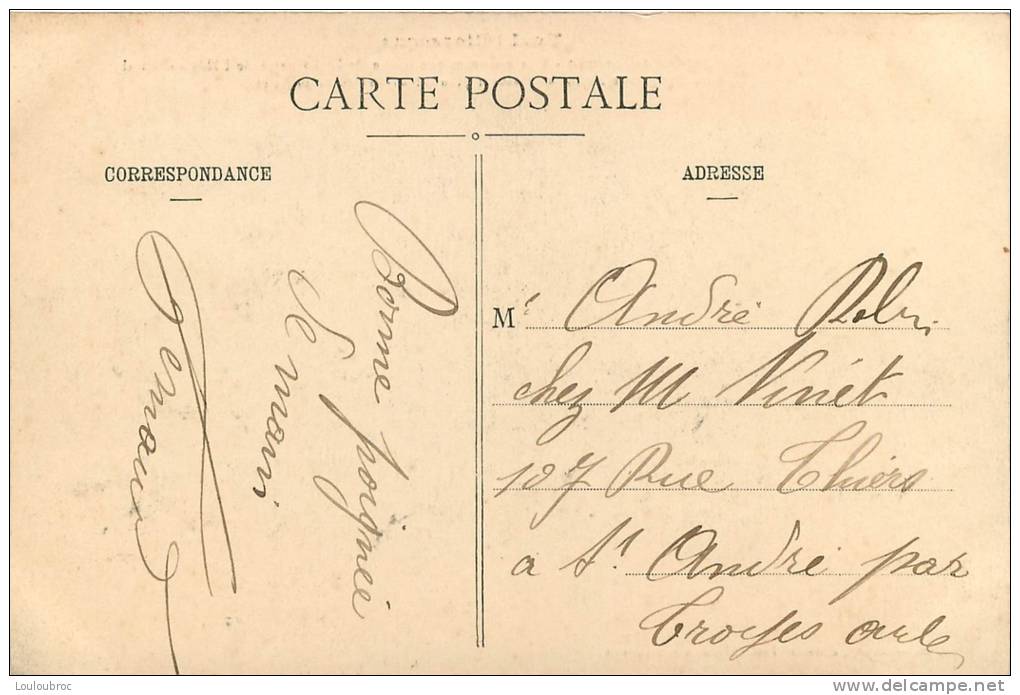 CARTE POSTALE
CORRESPONDANCE
Bonne poignée
de main
ADRESSE
Mr André
chez M Vinét
107 Rue Thiers
a St André par
Troyes aube
Louloubroc
www.delcampe.net